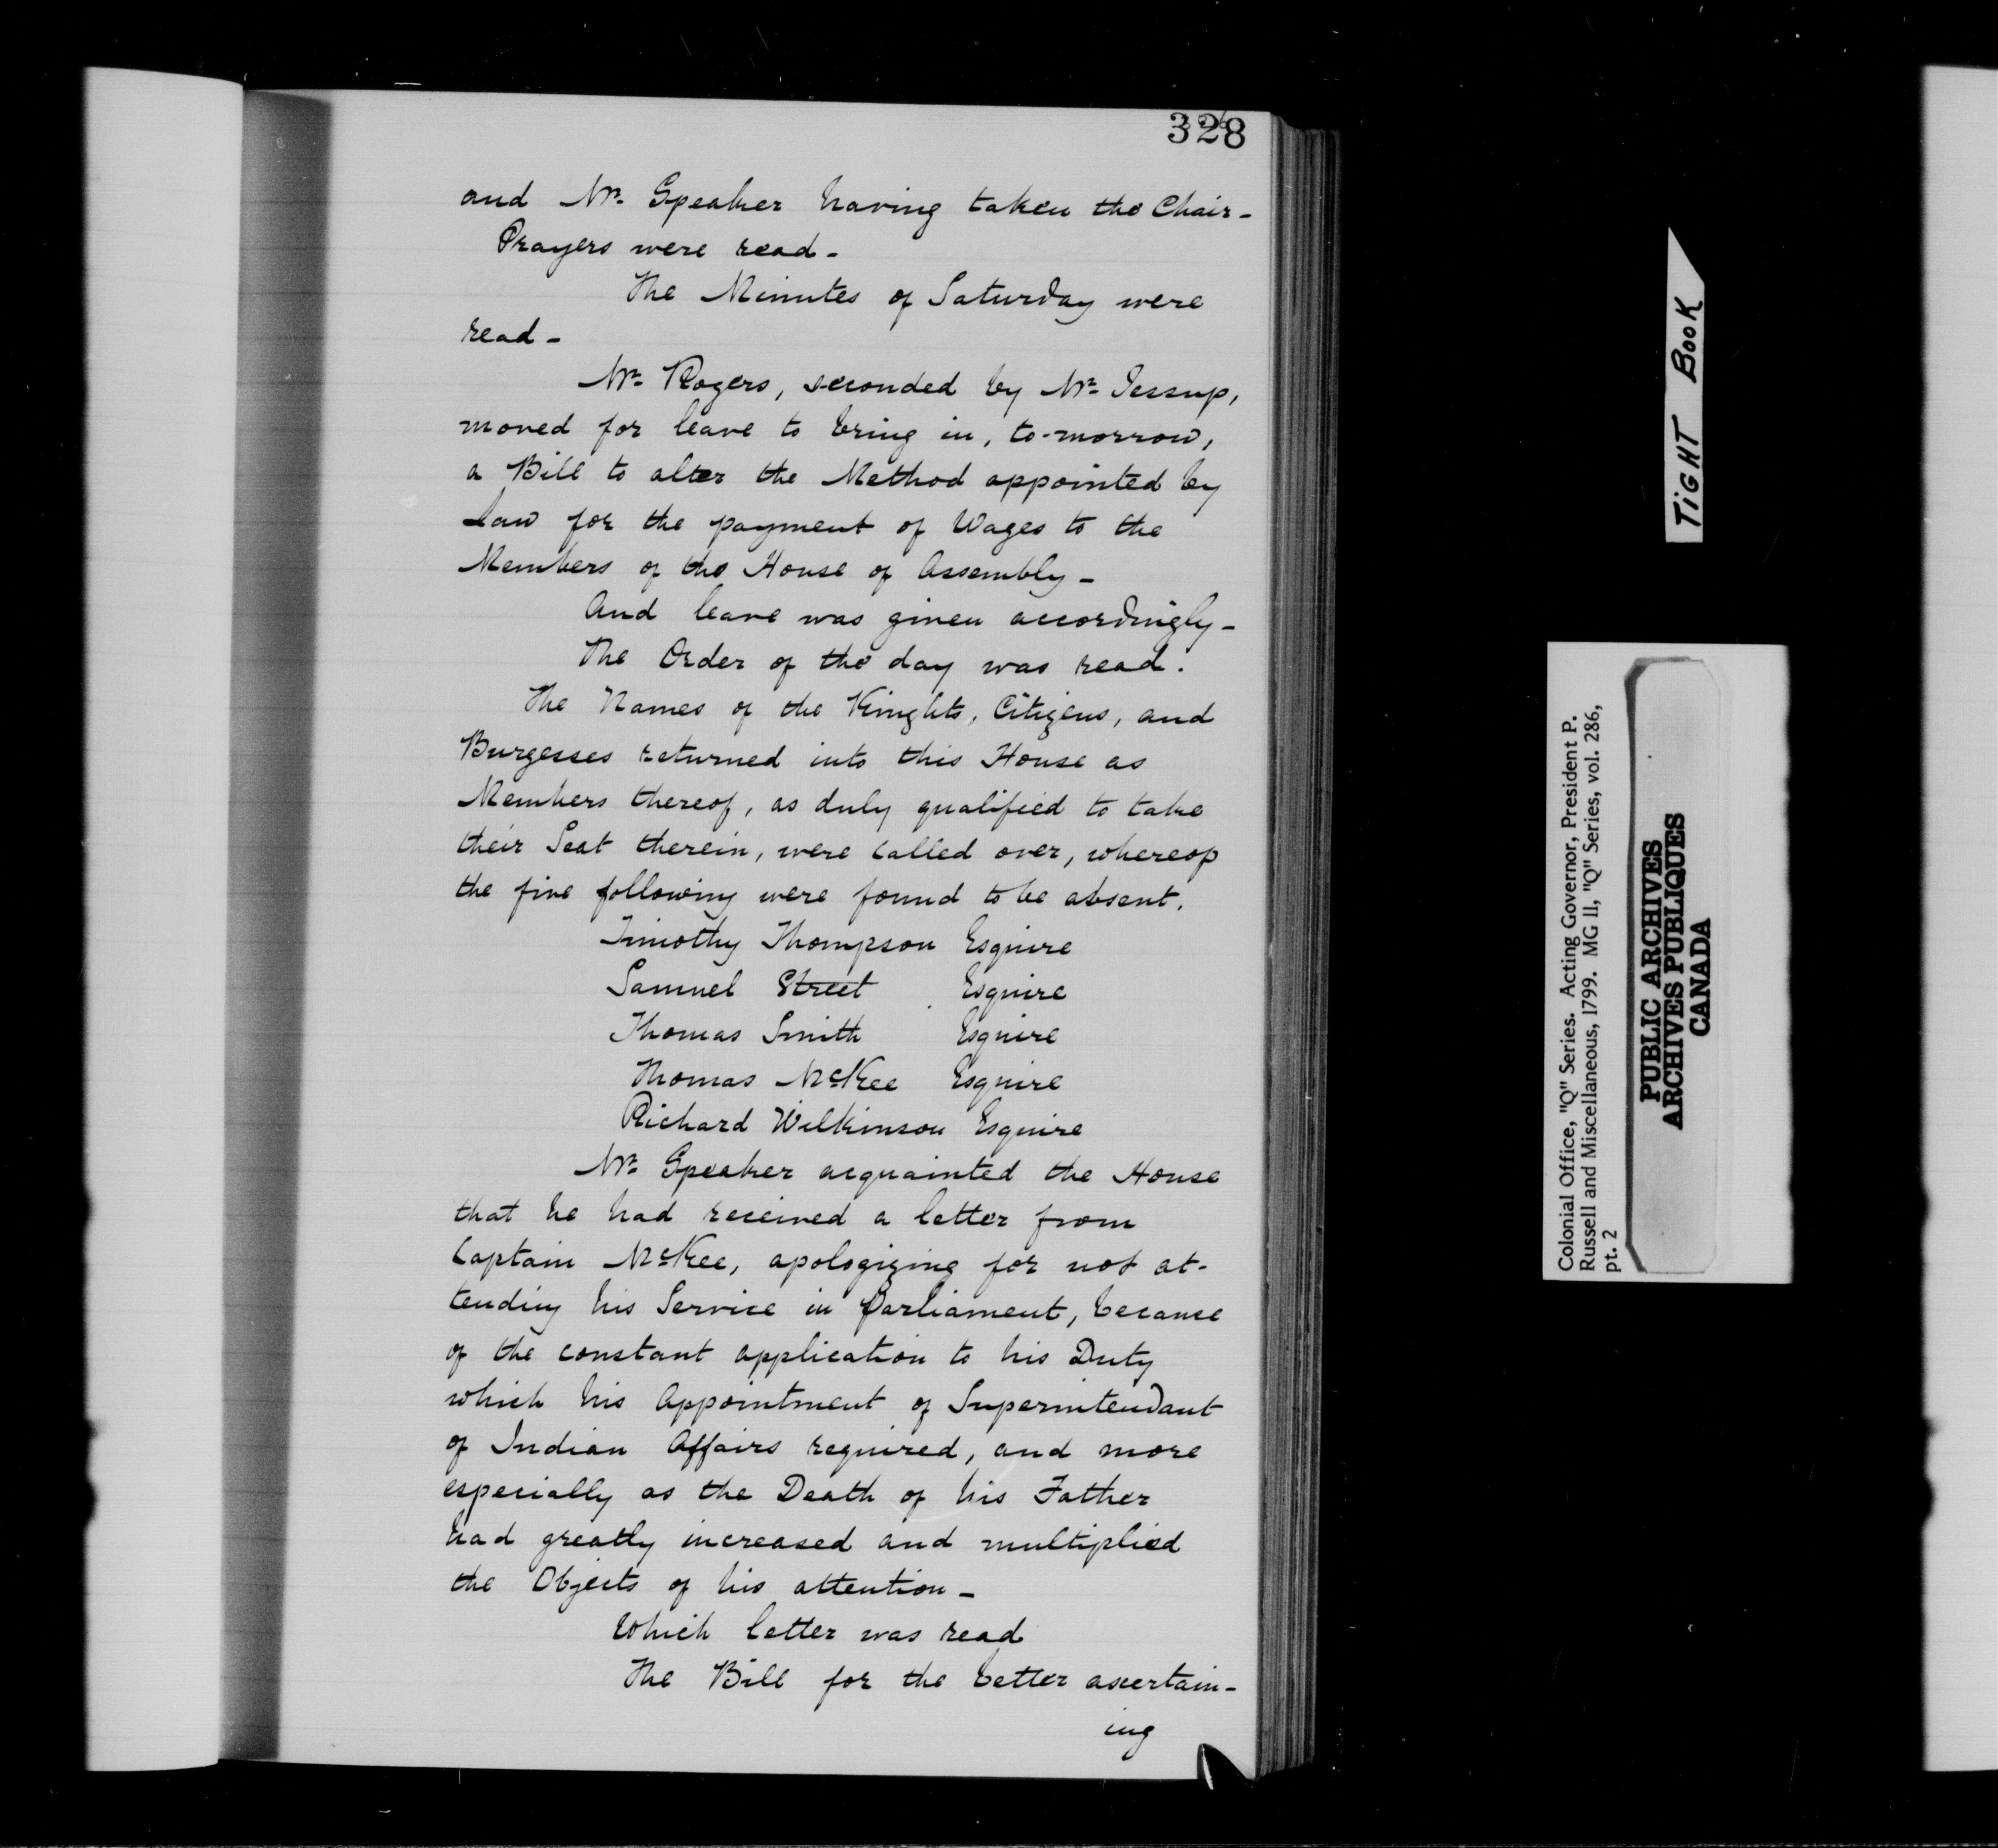 328
and Mr. Speaker having taken the Chair-
Prayers were read-
The Minutes of Saturday were
read-
Mr. Rogers, seconded by Mr. Jessup,
moved for leave to bring in, to-morrow,
a Bill to alter the Method appointed by
Law for the payment of Wages to the
Members of the House of Assembly-
And leave was given accordingly-
The Order of the day was read.
The Names of the Kinghts, Citizens, and
Burgesses returned into this House as
Members thereof, as duly qualified to take
their Seat therein, were called over, whereop
the five following were found to be absent.
Timothy Thompson Esquire
Samuel Street Esquire
Thomas Smith Esquire
Thomas McKee Esquire
Richard Wilkinson Esquire
Mr. Speaker acquainted the House
that he had received a letter from
Captain McKee, apologizing for not at-
tending his Service in Parliament, because
of the constant application to his Duty
which his Appointment of Superintendant
of Indian Affairs required, and more
especially as the Death of his Father
had greatly increased and multiplied
the Objects of his attention-
Which letter was read
The Bill for the better ascertain-
ing
TIGHT BOOK
Colonial Office, "Q" Series. Acting Governor, President P.
Russell and Miscellaneous, 1799. MG 11, "Q" Series, vol. 286,
pt. 2
PUBLIC ARCHIVES
ARCHIVES PUBLIQUES
CANADA